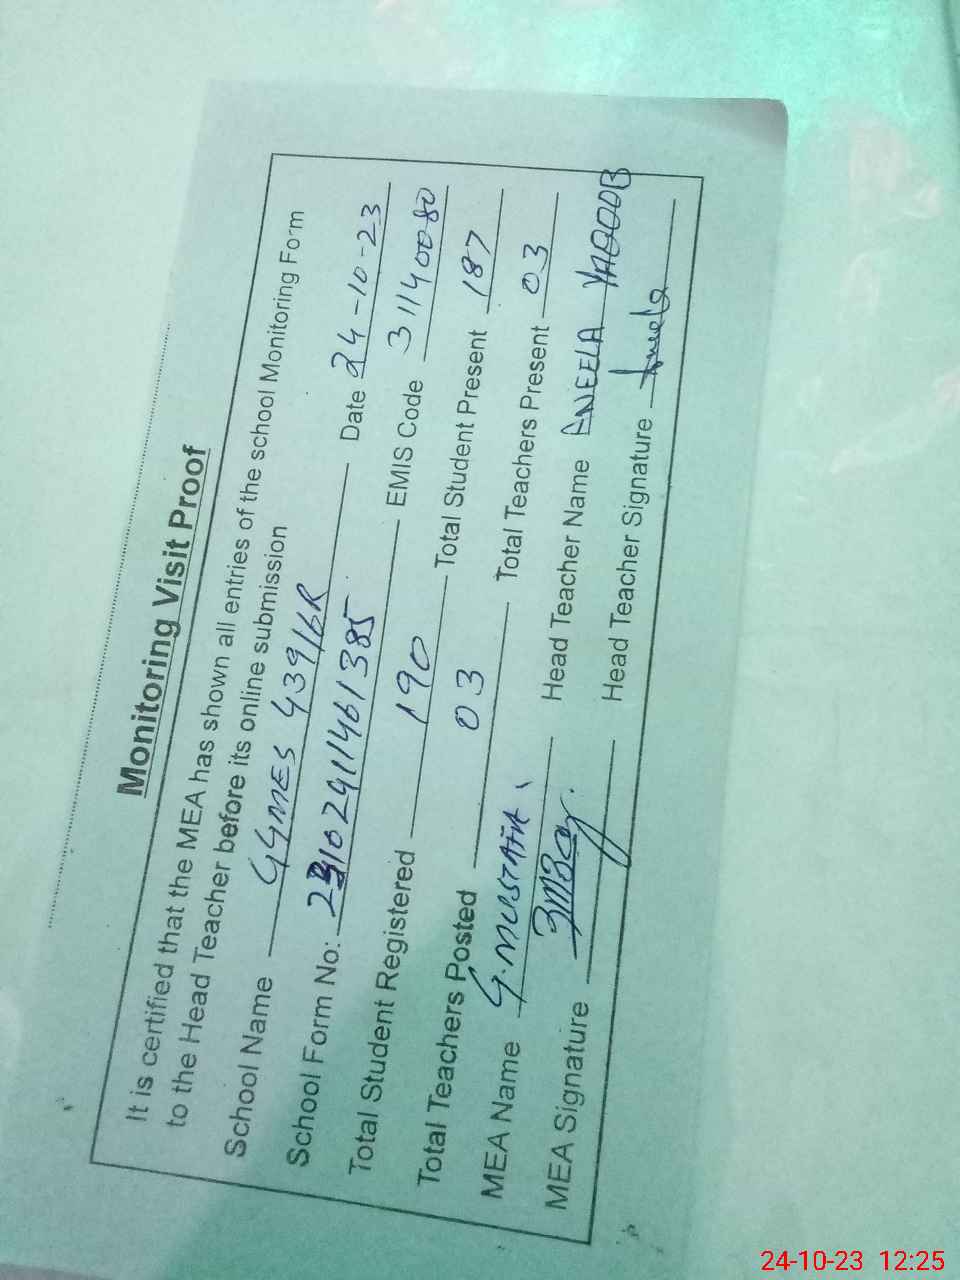 Monitoring Visit Proof
It is certified that the MEA has shown all entries of the school Monitoring Form
to the Head Teacher before its online submission
School Name GGMES 439/6R Date 24-10-23
School Form No: EMIS Code 31140080
Total Student Registered 190 Total Student Present 187
Total Teachers Posted 03 Total Teachers Present 03
MEA Name G.MUSTAFA Head Teacher Name ANEELA YAQOOB
MEA Signature Head Teacher Signature Aneela
24-10-23 12:25